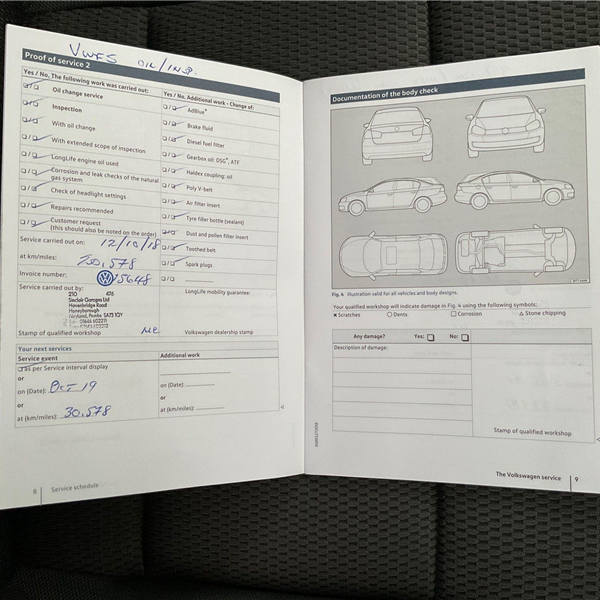 VWFS OIL/INSP.
Proof of service 2
Yes / No. The following work was carried out:
Oil change service
Inspection
With oil change
With extended scope of inspection
LongLife engine oil used
Corrosion and leak checks of the natural
gas system
Check of headlight settings
Repairs recommended
Customer request
(this should also be noted on the order)
Service carried out on: 12/10/18
at km/miles: 20,578
Invoice number: 15648
Service carried out by:
210 476
Sinclair Garages Ltd
Havenbridge Road
Honeyborough
Neyland, Pembs SA73 1QY
Tel: 01646 602271
Stamp of qualified workshop
Yes / No. Additional work - Change of:
AdBlue®
Brake fluid
Diesel fuel filter
Gearbox oil: DSG®, ATF
Haldex coupling: oil
Poly V-belt
Air filter insert
Tyre filler bottle (sealant)
Dust and pollen filter insert
Toothed belt
Spark plugs
LongLife mobility guarantee:
Volkswagen dealership stamp
Your next services
Service event
as per Service interval display
or
on (Date): Oct 19
or
at (km/miles): 30,578
Additional work
on (Date):
or
at (km/miles):
8 Service schedule
Documentation of the body check
Fig. 4 Illustration valid for all vehicles and body designs.
Your qualified workshop will indicate damage in Fig. 4 using the following symbols:
× Scratches ○ Dents □ Corrosion △ Stone chipping
Any damage? Yes: No:
Description of damage:
Stamp of qualified workshop
The Volkswagen service 9